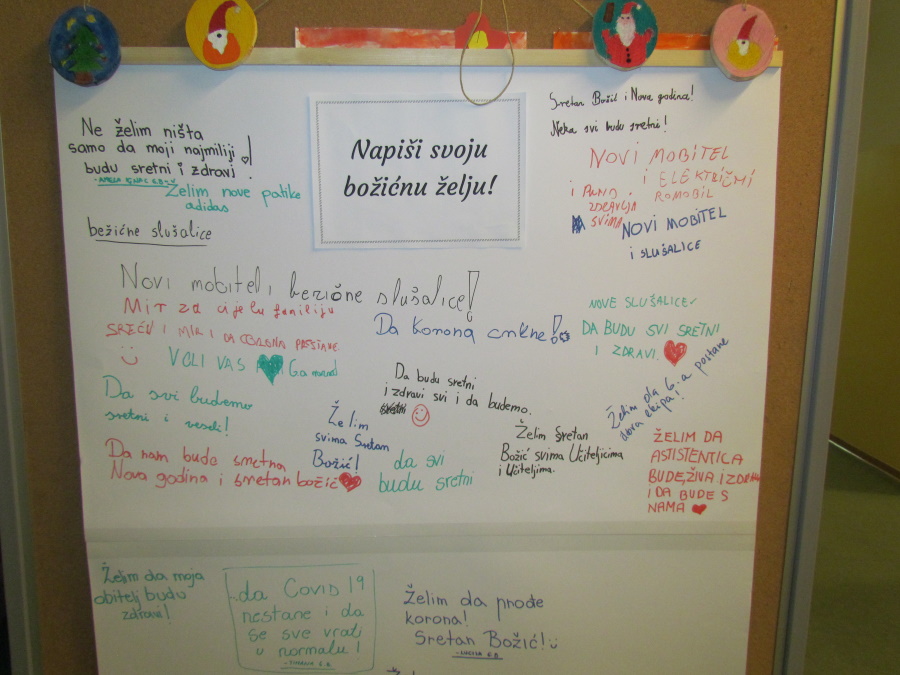 Napiši svoju
božićnu želju!
Ne želim ništa
samo da moji najmiliji
budu sretni i zdravi!
Želim nove patike
adidas
bežične slušalice
Sretan Božić i Nova godina!
Neka svi budu sretni!
NOVI MOBITEL
i ELEKTRIČNI
ROMOBIL
i PUNO
ZDRAVLJA
SVIMA
NOVI MOBITEL
i SLUŠALICE
Novi mobitel i bežične slušalice!
Mir za cijelu familiju
SREĆU I MIR I DA CORONA PRESTANE
VOLI VAS
Da korona crkne!
NOVE SLUŠALICE
DA BUDU SVI SRETNI
I ZDRAVI.
Da svi budemo
sretni i veseli!
Želim
svima Sretan
Božić!
Da budu sretni
i zdravi svi i da budemo.
sretni
Želim Sretan
Božić svima Učiteljicima
i Učiteljima.
Želim da 6.a postane
dobra ekipa!
Da nam bude smetna
Nova godina i smetan božić
da svi
budu sretni
ŽELIM DA
ASTISTENTICA
BUDE ŽIVA I ZDRAVA
I DA BUDE S
NAMA
Želim da moja
obitelj budu
zdravi!
da Covid 19
nestane i da
se sve vrati
u normalu!
Želim da prođe
korona!
Sretan Božić!